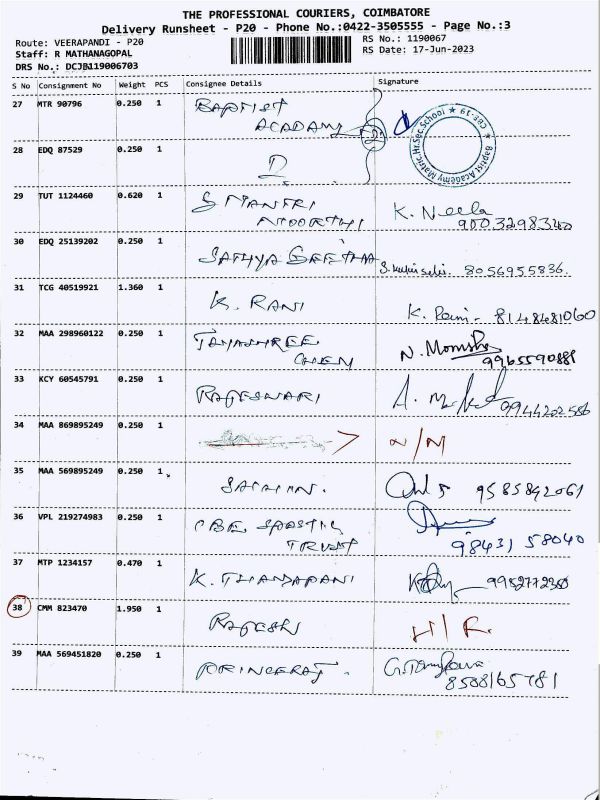 THE PROFESSIONAL COURIERS, COIMBATORE
Delivery Runsheet - P20 - Phone No.:0422-3505555 - Page No.:3
Route: VEERAPANDI - P20
Staff: R MATHANAGOPAL
DRS No.: DCJB119006703
RS No.: 1190067
RS Date: 17-Jun-2023
S No Consignment No Weight PCS Consignee Details Signature
27 MTR 90796 0.250 1 BAPTIST
ACADAMY
Baptist Academy Matric.Hr.Sec.School ★ CBE-19 ★
28 EDQ 87529 0.250 1
29 TUT 1124460 0.620 1 S MANTRI
MOORTHI K. Neela
9003298340
30 EDQ 25139202 0.250 1 SATHYA GEETHA 8056955836.
31 TCG 40519921 1.360 1 K. RANI K. Rani - 8148481060
32 MAA 298960122 0.250 1 JAYASHREE
CHEM N. Monisha
9965590888
33 KCY 60545791 0.250 1 RAJESWARI 9944202586
34 MAA 869895249 0.250 1 N/M
35 MAA 569895249 0.250 1 9585842061
36 VPL 219274983 0.250 1 CBE SPASTIC
TRUST 98431 58040
37 MTP 1234157 0.470 1 K. THANDAPANI 9952772350
38 CMM 823470 1.950 1 RAJESH H/R.
39 MAA 569451820 0.250 1 PRINCERAJ.
8508165781